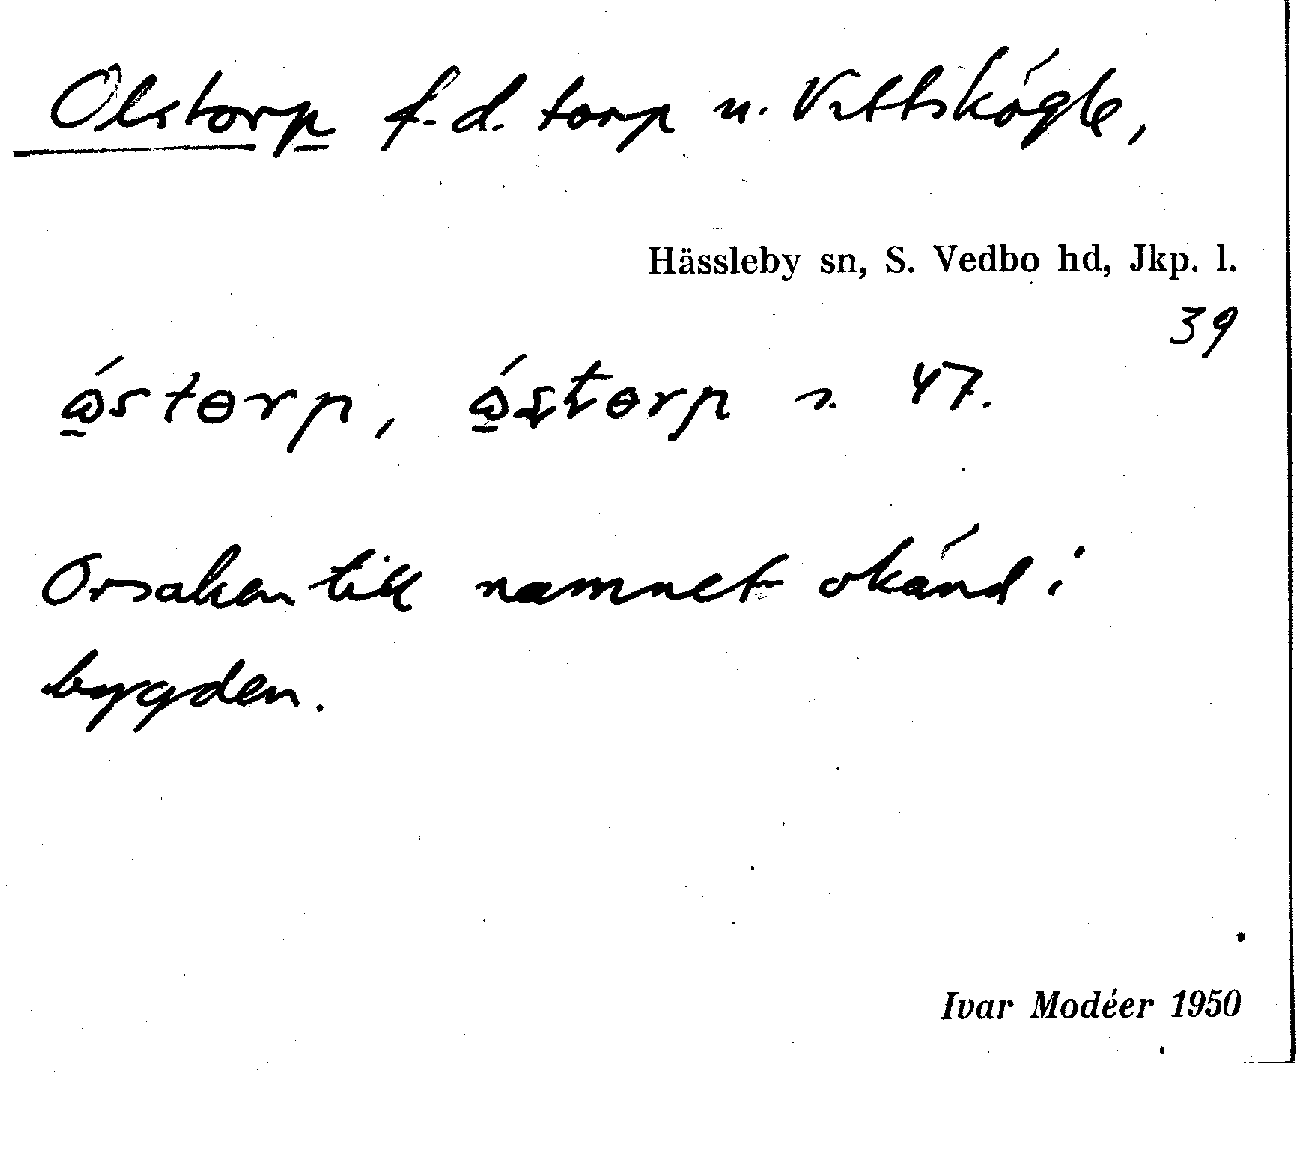 Olstorp f.d. torp u. Vittskögle,
Hässleby sn, S. Vedbo hd, Jkp. l.
39
storp, 47.
Orsaken till namnet okänd i
bygden.
Ivar Modéer 1950